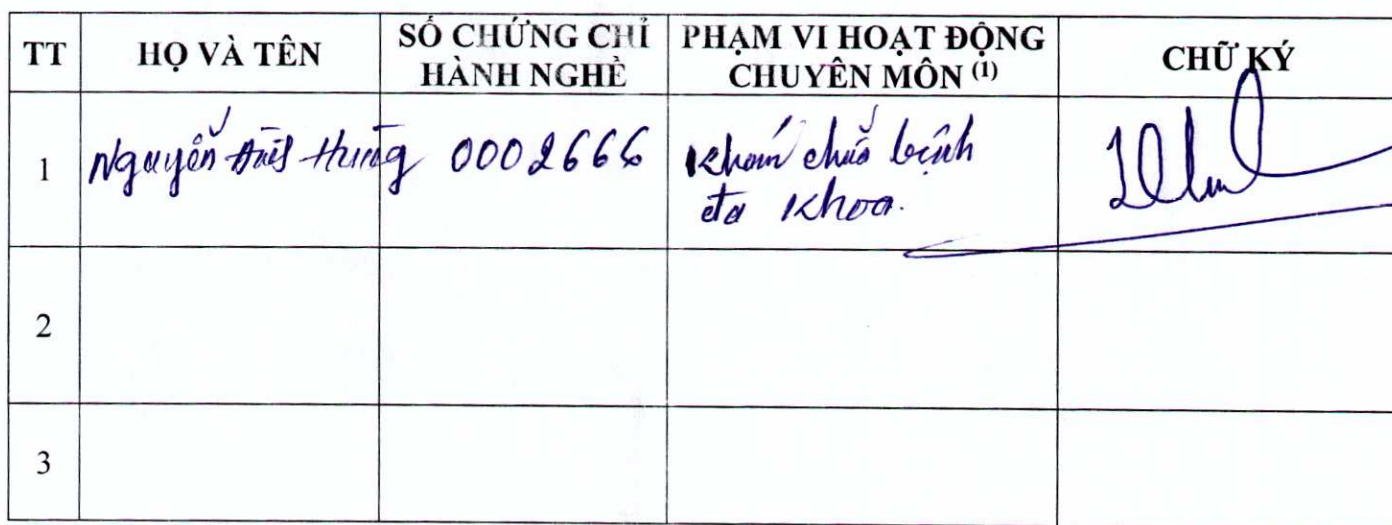 TT HỌ VÀ TÊN SỐ CHỨNG CHỈ HÀNH NGHỀ PHẠM VI HOẠT ĐỘNG CHUYÊN MÔN (1) CHỮ KÝ
1 Nguyễn Hưng 0002666 Khám chữa bệnh
đa khoa.
2
3